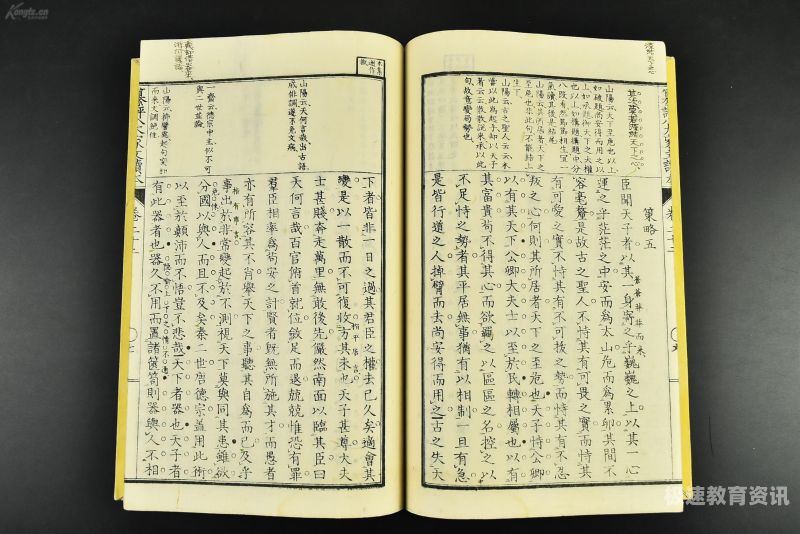 Kongfz.cn
策略五
臣聞天子者以其一身寄之乎巍巍之上以其一心
運之乎茫茫之中安而爲太山危而爲累卵其間不
容毫釐是故古之聖人不恃其有可畏之資而恃其
有可愛之實不恃其有不可拔之勢而恃其有不忍
叛之心何則其所居者天下之至危也天子恃公卿
以有其天下公卿大夫士以至於民轉相屬也以有
其富貴苟不得其心而欲羈之以區區之名控之以
不足恃之勢者其平居無事猶有以相制一旦有急
是皆行道之人掉臂而去尚安得而用之古之失天
山陽云天下至危也以上
至危也非此句不能結上
山陽云古之聖人云云本
者云云散說來承以此
句故意變局勢也
下者皆非一日之過其君臣之權去已久矣適會其
變是以一散而不可復收方其未也天子甚尊大夫
士甚賤奔走萬里無敢後先儼然南面以臨其臣曰
天何言哉百官俯首就位斂足而退兢兢惟恐有罪
羣臣相率爲苟安之計賢者既無所施其才而愚者
亦有所容其不肖舉天下之事聽其自爲而已及乎
事出於非常變起於不測視天下莫與同其患雖欲
分國以與人而且不及矣秦二世唐德宗蓋用此術
以至於顛沛而不悟豈不悲哉天下者器也天子者
有此器者也器久不用而置諸篋笥則器與人不相
山陽云天何言哉出古語
底俳調遂不免文病
一齋云德宗中主似不可
與二世並論
而來文調絕佳
極速教育资讯